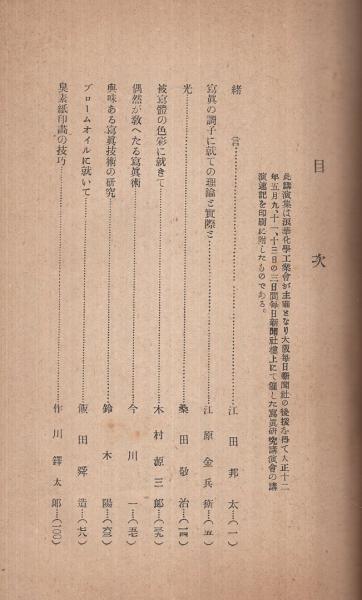 目次
此講演集は浪華化學工業會が主催となり大阪毎日新聞社の後援を得て大正十二
年五月九、十一、十三日の三日間毎日新聞社樓上にて催した寫眞研究講演會の講
演速記を印刷に附したものである。
緒言……江田邦太…(一)
寫眞の調子に就ての理論と實際と……江原金兵衞…(五)
光……桑田敬治…(一四)
被寫體の色彩に就きて……木村源三郎…(三九)
偶然が敎へたる寫眞術……今川一…(五七)
興味ある寫眞技術の研究……鈴木陽…(六三)
ブロームオイルに就いて……飯田舜造…(七八)
臭素紙印畫の技巧……作川鐸太郎…(一〇〇)